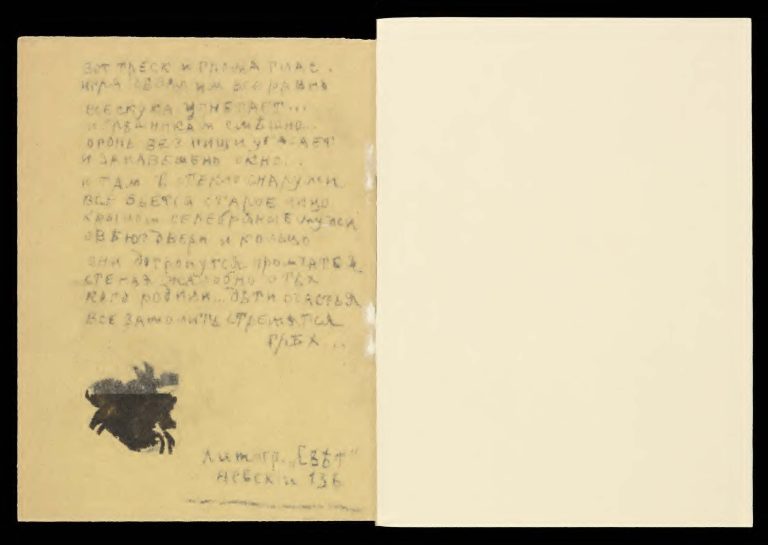 ВОТ ТРЕСК И ГРОМА ГЛАС.
ИГРА ВСЕ РАВНО
ВСЕ СКУКА УГНЕТАЕТ...
И ГРѢШНИКАМ СМѢШНО..
ОГОНЬ БЕЗ ПИЩИ УГАСАЕТ
И ЗАНАВЕШЕНО ОКНО..
И ТАМ В СТЕКЛО СНАРУЖИ
ВСЕ БЬЕТСЯ СТАРОЕ ЛИЦО
КРЫЛОМ СЕРЕБРЯНЫЕ МУЖИ
ОВѢЮТ ДВЕРИ И КОЛЬЦО
ОНИ ДОТРОНУТСЯ ПРОМЧАТСЯ
СТЕНАЯ ЖАЛОБНО О ТѢХ
КОГО РОДИЛИ.. ДѢТИ СЧАСТЬЯ
ВСЕ ЗАМОЛИТЬ СТРЕМЯТСЯ
ГРѢХ...
Литогр. „Свѣт"
Невски 136